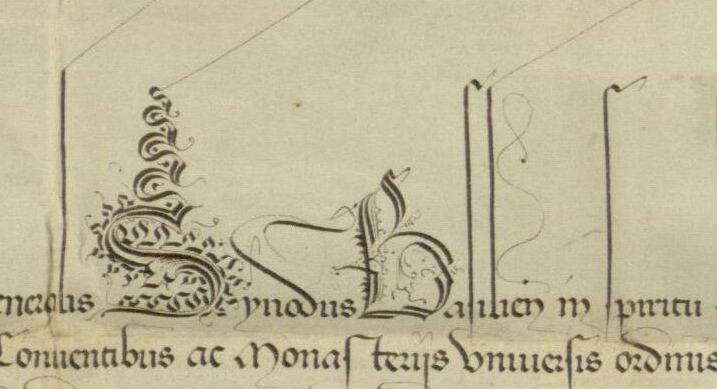 eneralis Synodus Basilien in spiritu
Conuentibus ac Monasterijs Vniuersis ordinis